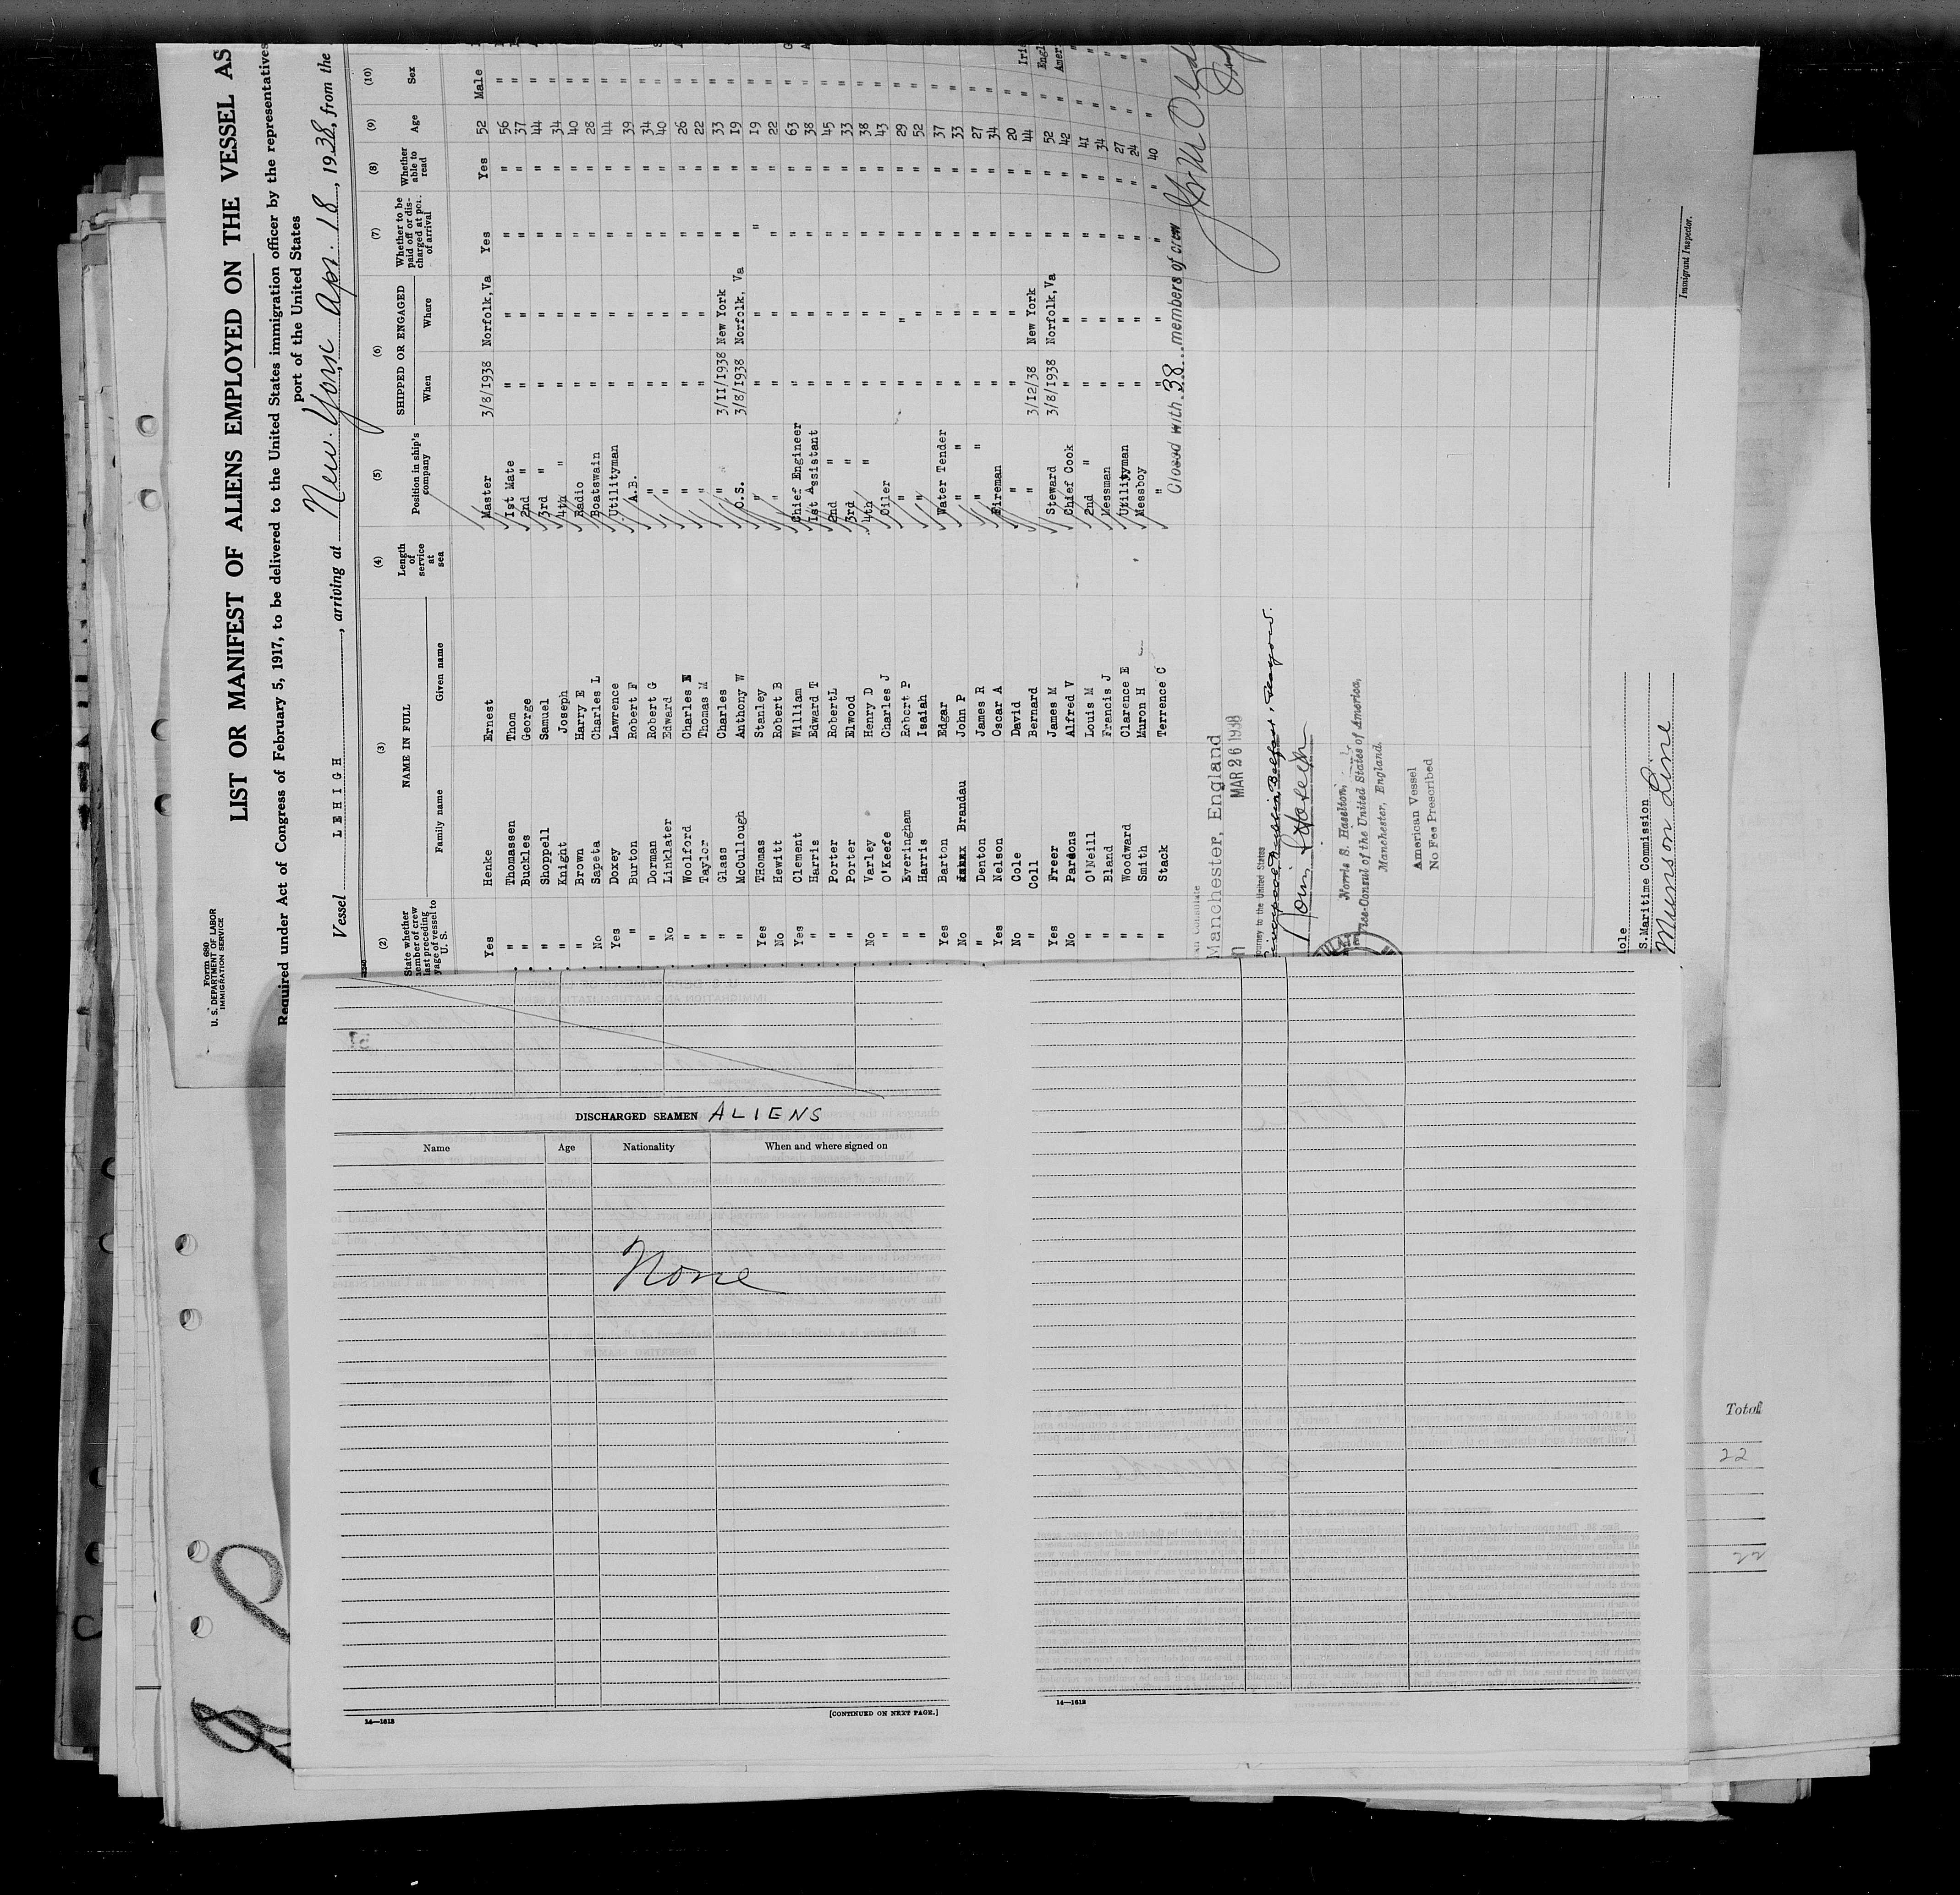 Form 680
U. S. DEPARTMENT OF LABOR
IMMIGRATION SERVICE
LIST OR MANIFEST OF ALIENS EMPLOYED ON THE VESSEL AS
Required under Act of Congress of February 5, 1917, to be delivered to the United States immigration officer by the representatives
port of the United States
Vessel LEHIGH, arriving at New York Apr. 18, 1938, from the
(2) (3) (4) (5) (6) (7) (8) (9) (10)
State whether member of crew last preceding voyage of vessel to U. S. NAME IN FULL Family name Given name Length of service at sea Position in ship's company SHIPPED OR ENGAGED When Where Whether to be paid off or discharged at port of arrival Whether able to read Age Sex
Yes Henke Ernest Master 3/8/1938 Norfolk,Va Yes Yes 52 Male
" Thomassen Thom 1st Mate " " " " 56 "
" Buckles George 2nd " " " " " 37 "
" Shoppell Samuel 3rd " " " " " 44 "
" Knight Joseph 4th " " " " " 34 "
" Brown Harry E Radio " " " " 40 "
No Sapeta Charles L Boatswain " " " " 28 "
Yes Doxey Lawrence Utilityman " " " " 44 "
" Burton Robert F A.B. " " " " 39 "
" Dorman Robert G " " " " " 34 "
No Linklater Edward " " " " " 40 "
" Woolford Charles E " " " " " 26 "
" Taylor Thomas M " " " " " 22 "
" Glass Charles " 3/11/1938 New York " " 33 "
" McCullough Anthony W O.S. 3/8/1938 Norfolk, Va " " 19 "
Yes THomas Stanley " " " " " 19 "
No Hewitt Robert B " " " " " 22 "
Yes Clement William Chief Engineer " " " " 63 "
" Harris Edward T 1st Assistant " " " " 38 "
" Porter RobertL 2nd " " " " " 45 "
" Porter Elwood 3rd " " " " " 33 "
No Varley Henry D 4th " " " " " 38 "
" O'Keefe Charles J Oiler " " " " 43 "
" Everingham Robert P " " " " " 29 "
" Harris Isaiah " " " " " 52 "
Yes Barton Edgar Water Tender " " " " 37 "
No Brandau John P " " " " " " 33 "
" Denton James R " " " " " " 27 "
Yes Nelson Oscar A Fireman " " " " 34 "
No Cole David " " " " " 20 "
" Coll Bernard " 3/12/38 New York " " 44 "
Yes Freer James M Steward 3/8/1938 Norfolk,Va " " 52 "
No Parsons Alfred V Chief Cook " " " " 42 "
" O'Neill Louis M 2nd " " " " " 41 "
" Bland Francis J Messman " " " " 34 "
" Woodward Clarence E Utilityman " " " " 27 "
" Smith Muron H Messboy " " " " 24 "
" Stack Terrence C " " " " " 40 "
Closed with 38 members of crew
Manchester, England
MAR 26 1938
journey to the United States
Norris S. Haselton,
Vice-Consul of the United States of America,
Manchester, England.
American Vessel
No Fee Prescribed
S.Maritime Commission
Munson Line
Immigrant Inspector.
DISCHARGED SEAMEN ALIENS
Name Age Nationality When and where signed on
None
14—1613
[CONTINUED ON NEXT PAGE.]
14—1613
Total
22
22